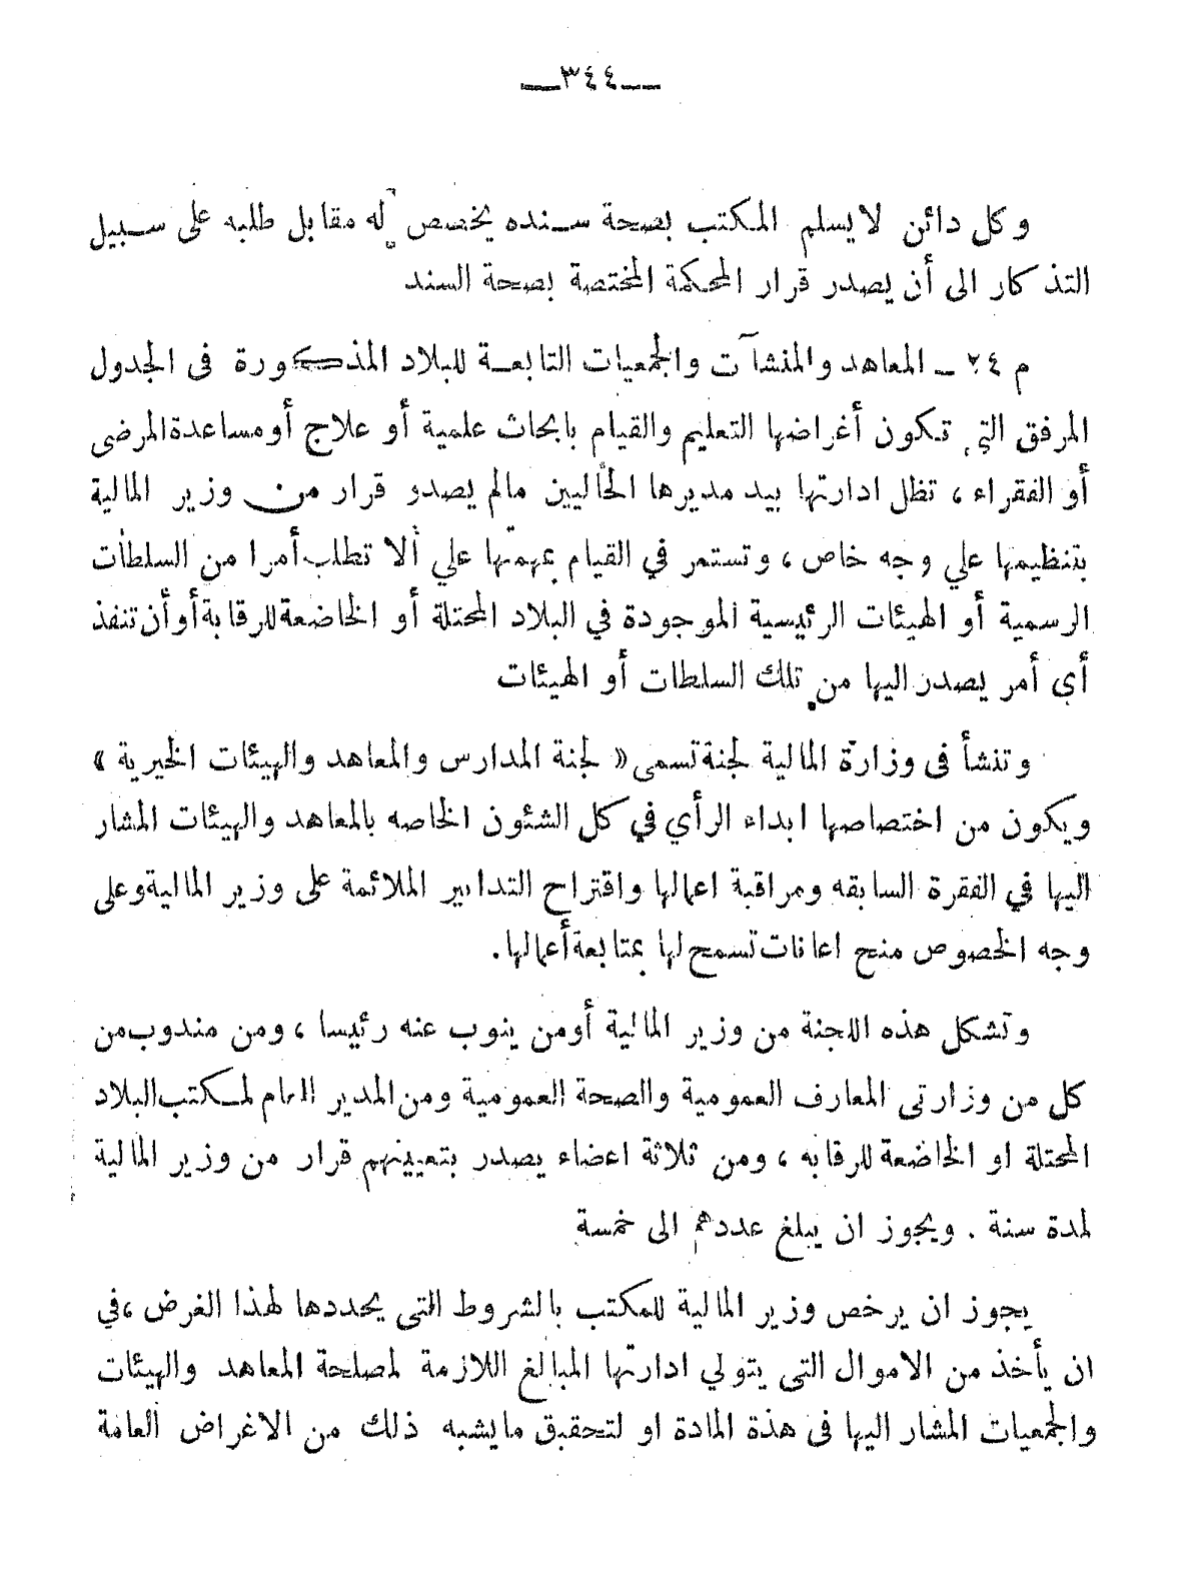 —٣٤٤—
وكل دائن لا يسلم المكتب بصحة سنده يخصص له مقابل طلبه على سبيل
التذكار الى أن يصدر قرار المحكمة المختصة بصحة السند
م ٢٤ — المعاهد والمنشآت والجمعيات التابعة للبلاد المذكورة فى الجدول
المرفق التي تكون أغراضها التعليم والقيام بابحاث علمية أو علاج أو مساعدة المرضى
أو الفقراء ، تظل ادارتها بيد مديرها الحاليين مالم يصدر قرار من وزير المالية
بتنظيمها علي وجه خاص ، وتستمر في القيام بمهمتها علي ألا تطلب أمرا من السلطات
الرسمية أو الهيئات الرئيسية الموجودة في البلاد المحتلة أو الخاضعة للرقابة أو أن تنفذ
أي أمر يصدر اليها من تلك السلطات أو الهيئات
وتنشأ فى وزارة المالية لجنة تسمى « لجنة المدارس والمعاهد والهيئات الخيرية »
ويكون من اختصاصها ابداء الرأي في كل الشئون الخاصه بالمعاهد والهيئات المشار
اليها في الفقرة السابقه ومراقبة اعمالها واقتراح التدابير الملائمة على وزير المالية وعلى
وجه الخصوص منح اعانات تسمح لها بمتابعة أعمالها.
وتشكل هذه اللجنة من وزير المالية أو من ينوب عنه رئيسا ، ومن مندوب من
كل من وزارتى المعارف العمومية والصحة العمومية ومن المدير العام لمكتب البلاد
المحتلة او الخاضعة للرقابه ، ومن ثلاثة اعضاء يصدر بتعيينهم قرار من وزير المالية
لمدة سنة . ويجوز ان يبلغ عددهم الى خمسة
يجوز ان يرخص وزير المالية للمكتب بالشروط التى يحددها لهذا الغرض ، في
ان يأخذ من الاموال التى يتولي ادارتها المبالغ اللازمة لمصلحة المعاهد والهيئات
والجمعيات المشار اليها فى هذة المادة او لتحقيق مايشبه ذلك من الاغراض العامة